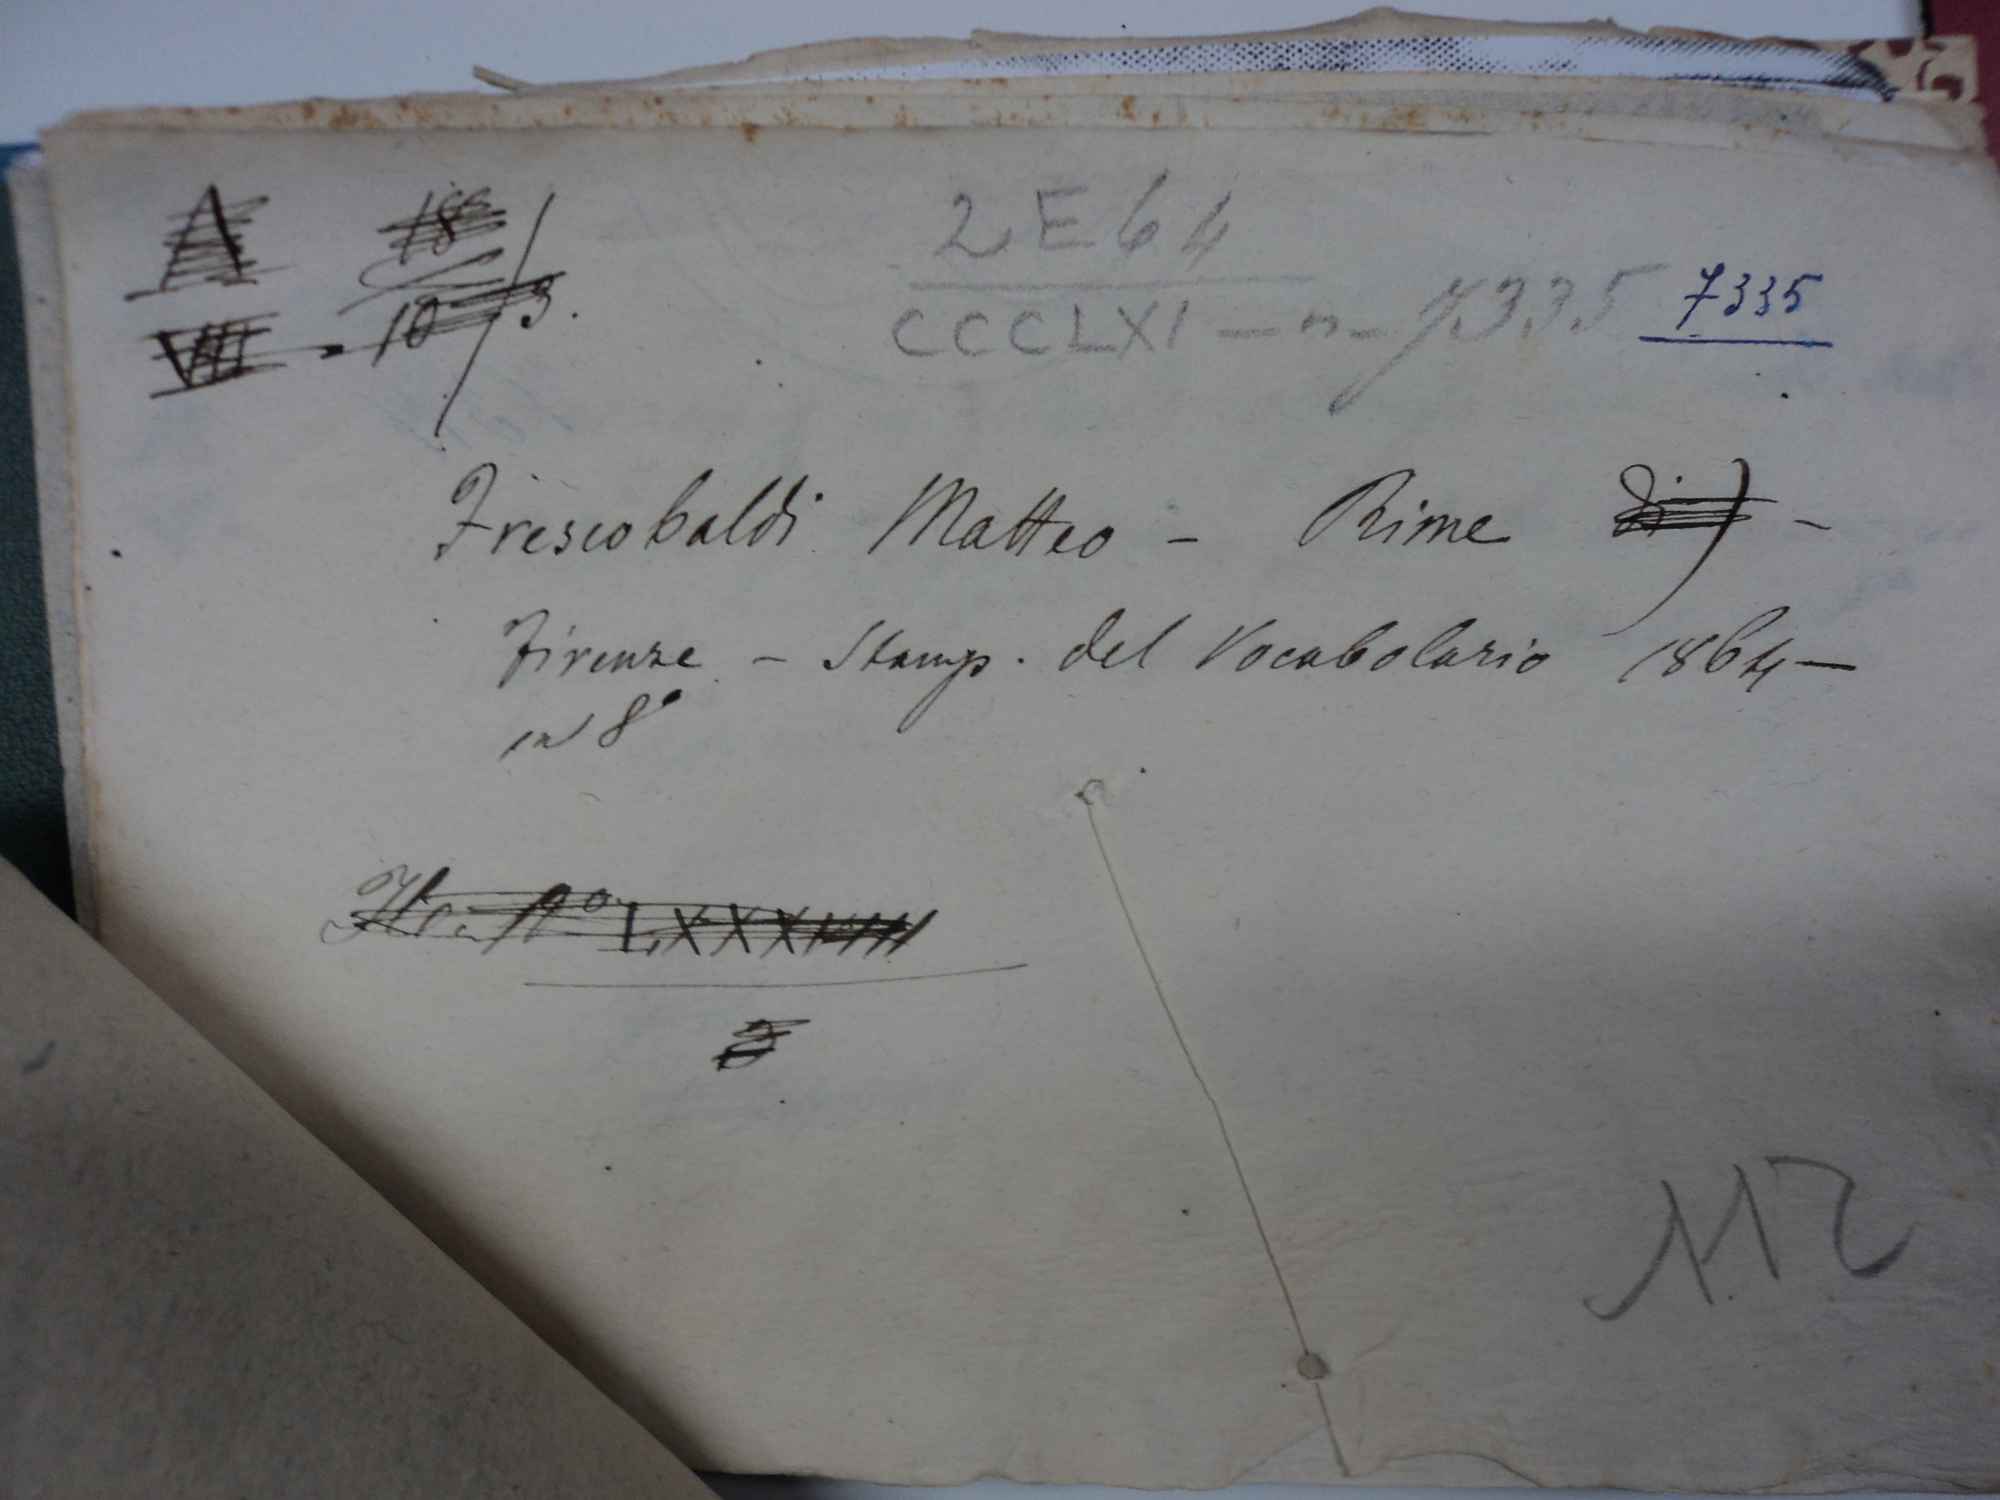 A 18
VIII - 10 / 3.
2E64
CCCLXI - n - 7335 7335
Frescobaldi Matteo - Rime di -
Firenze - Stamp. del Vocabolario 1864 -
in 8°
N° LXXXIIIII
3